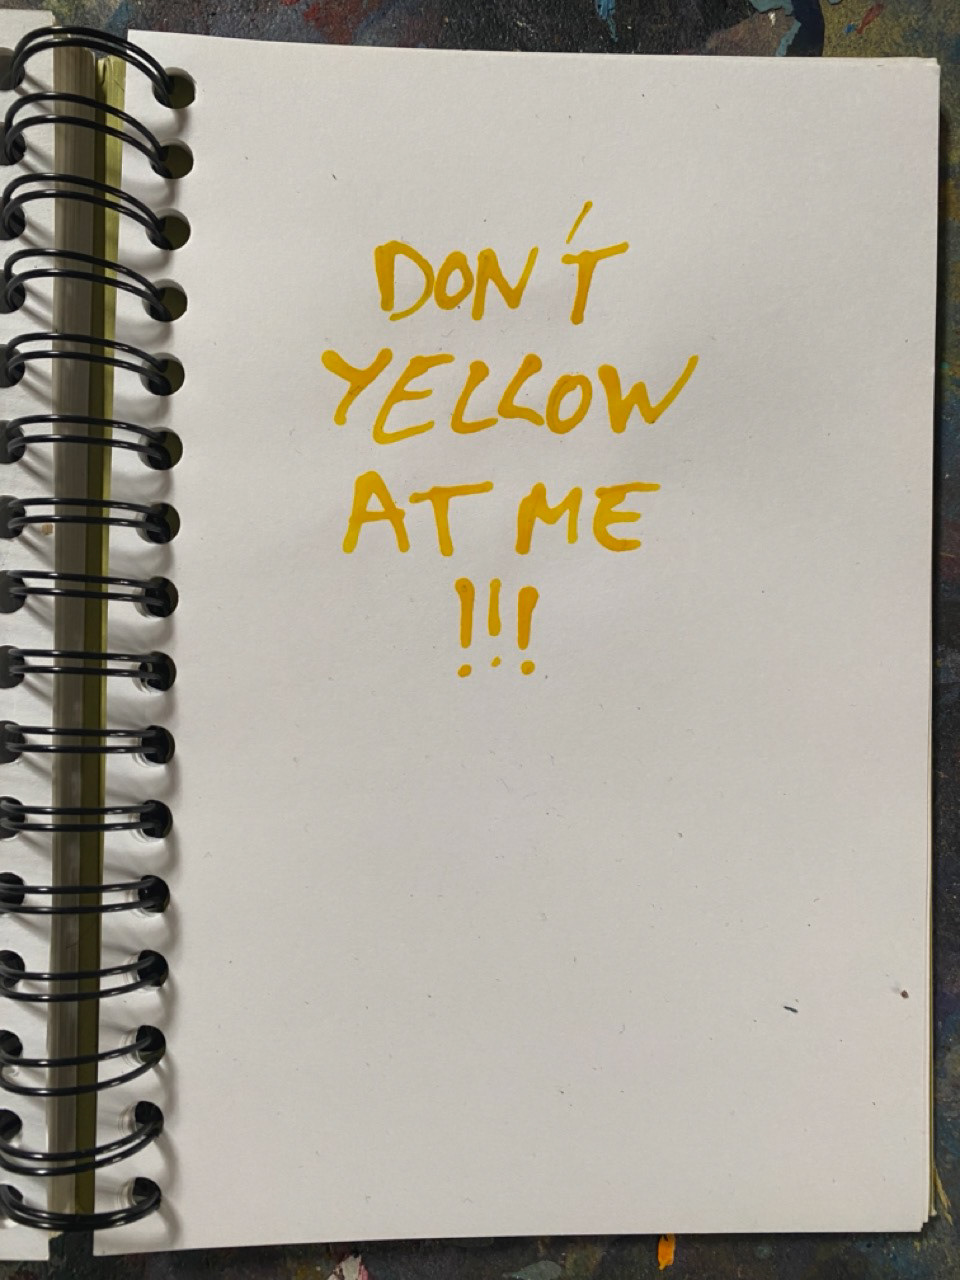 DON'T
YELLOW
AT ME
!!!